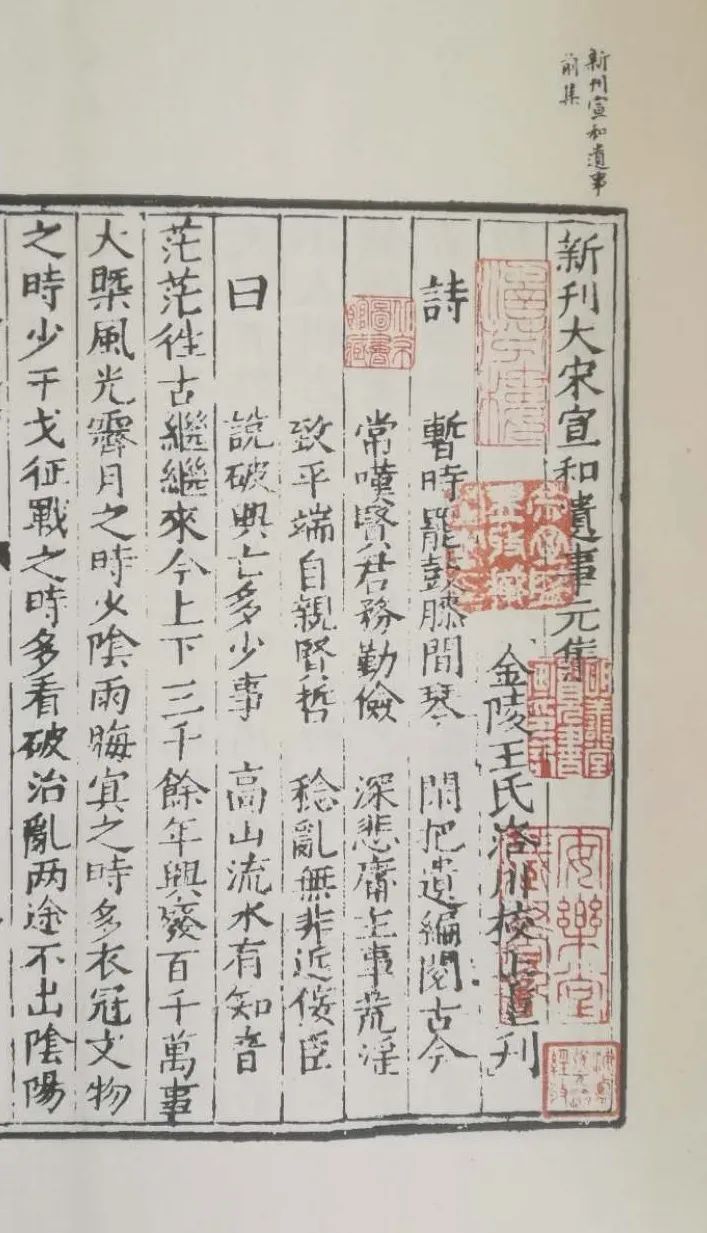 新刊宣和遺事
前集
新刊大宋宣和遺事元集
金陵王氏洛川校正重刊
詩 暫時罷鼓膝間琴 閑把遺編閱古今
常嘆賢君務勤儉 深悲庸主事荒淫
致平端自親賢哲 稔亂無非近佞臣
曰 說破興亡多少事 高山流水有知音
茫茫徃古繼繼來今上下三千餘年興廢百千萬事
大槩風光霽月之時少陰雨晦㝠之時多衣冠文物
之時少干戈征戰之時多看破治亂两途不出陰陽
明善堂覽書畫印記
安樂堂藏書記